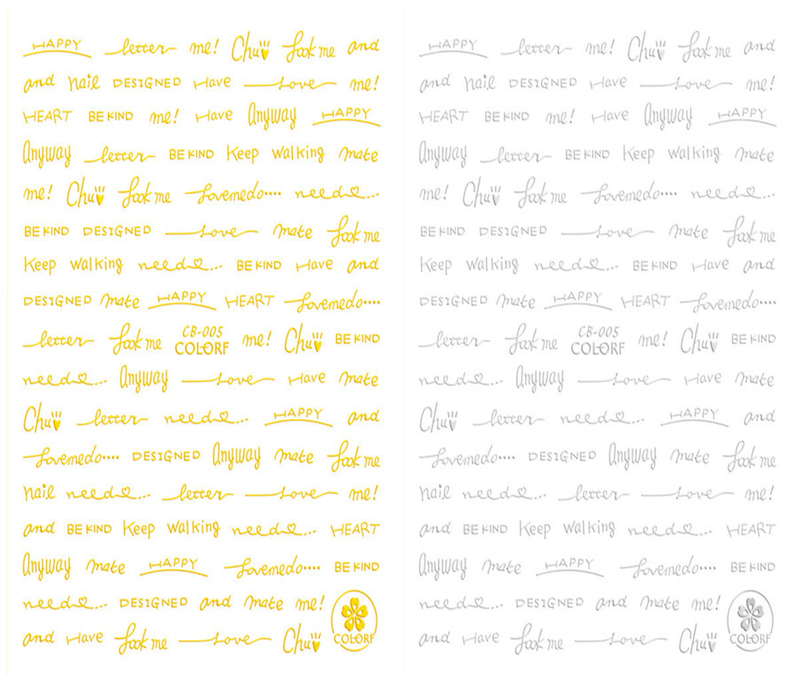 HAPPY letter me! Chu look me and
and nail DESIGNED Have Love me!
HEART BE KIND me! Have Anyway HAPPY
Anyway letter BE KIND Keep walking mate
me! Chu look me Lovemedo.... need...
BE KIND DESIGNED Love mate look me
Keep walking need... BE KIND Have and
DESIGNED mate HAPPY HEART Lovemedo....
letter look me CB-005 COLORF me! Chu BE KIND
need... Anyway Love Have mate
Chu letter need... HAPPY and
Lovemedo.... DESIGNED Anyway mate look me
nail need... letter Love me!
and BE KIND Keep walking need... HEART
Anyway mate HAPPY Lovemedo.... BE KIND
need... DESIGNED and mate me!
and Have look me Love Chu COLORF
HAPPY letter me! Chu look me and
and nail DESIGNED Have Love me!
HEART BE KIND me! Have Anyway HAPPY
Anyway letter BE KIND Keep walking mate
me! Chu look me Lovemedo.... need...
BE KIND DESIGNED Love mate look me
Keep walking need... BE KIND Have and
DESIGNED mate HAPPY HEART Lovemedo....
letter look me CB-005 COLORF me! Chu BE KIND
need... Anyway Love Have mate
Chu letter need... HAPPY and
Lovemedo.... DESIGNED Anyway mate look me
nail need... letter Love me!
and BE KIND Keep walking need... HEART
Anyway mate HAPPY Lovemedo.... BE KIND
need... DESIGNED and mate me!
and Have look me Love Chu COLORF